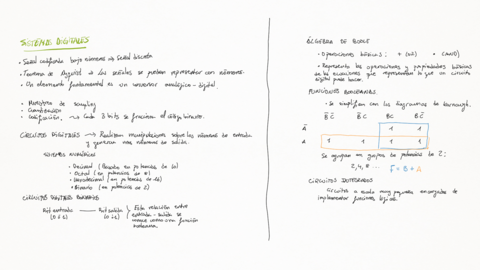 SISTEMAS DIGITALES
• Señal codificada bajo números → Señal discreta
• Teorema de Nyquist → Las señales se pueden representar con números.
• Un elemento fundamental es un conversor analógico - digital.
• Muestreo de
• Cuantización
• Codificación, → Cada 8 bits se
CIRCUITOS DIGITALES → Realizan manipulaciones sobre los números de entrada
y generan más números de salida.
SISTEMAS NUMÉRICOS
• Decimal (Basado en potencias de 10)
• Octal (en potencias de 8)
• Hexadecimal (en potencias de 16)
• Binario (en potencias de 2)
CIRCUITOS DIGITALES BINARIOS
Bit entrada (0 ó 1) → Bit salida (0 ó 1)
Esta relación entre
entrada - salida se
conoce como una función
ÁLGEBRA DE BOOLE
• Operaciones básicas: + (OR) • (AND)
• Representa las operaciones y propiedades básicas
de las ecuaciones que representan lo que un circuito
digital puede hacer.
FUNCIONES BOOLEANAS
• Se simplifican con los diagramas de Karnaugh.
B̄ C̄ B̄ C B C B C̄
Ā 1 1
A 1 1 1 1
Se agrupan en grupos de potencias de 2:
2, 4, 8 ... F = B + A
CIRCUITOS INTEGRADOS
Circuitos a escala muy pequeña encargados de
implementar funciones lógicas.